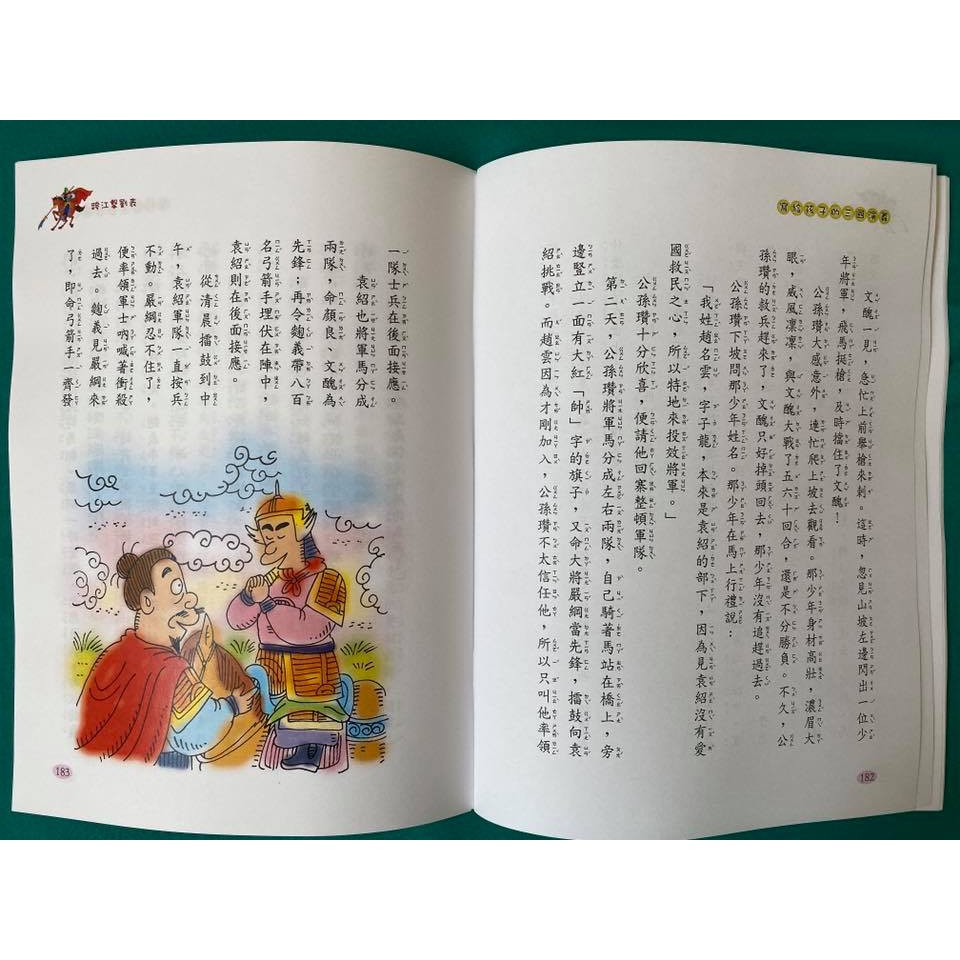 寫給孩子的三國演義
文醜一見，急忙上前舉槍來刺。這時，忽見山坡左邊閃出一位少
年將軍，飛馬挺槍，及時擋住了文醜！
公孫瓚大感意外，連忙爬上坡去觀看。那少年身材高壯，濃眉大
眼，威風凜凜，與文醜大戰了五六十回合，還是不分勝負。不久，公
孫瓚的救兵趕來了，文醜只好掉頭回去，那少年沒有追趕過去。
公孫瓚下坡問那少年姓名。那少年在馬上行禮說：
「我姓趙名雲，字子龍，本來是袁紹的部下，因為見袁紹沒有愛
國救民之心，所以特地來投效將軍。」
公孫瓚十分欣喜，便請他回寨整頓軍隊。
第二天，公孫瓚將軍馬分成左右兩隊，自己騎著馬站在橋上，旁
邊豎立一面有大紅「帥」字的旗子，又命大將嚴綱當先鋒，擂鼓向袁
紹挑戰。而趙雲因為才剛加入，公孫瓚不太信任他，所以只叫他率領
182
跨江擊劉表
一隊士兵在後面接應。
袁紹也將軍馬分成
兩隊，命顏良、文醜為
先鋒；再令麴義帶八百
名弓箭手埋伏在陣中，
袁紹則在後面接應。
從清晨擂鼓到中
午，袁紹軍隊一直按兵
不動。嚴綱忍不住了，
便率領軍士吶喊著衝殺
過去。麴義見嚴綱來
了，即命弓箭手一齊發
183